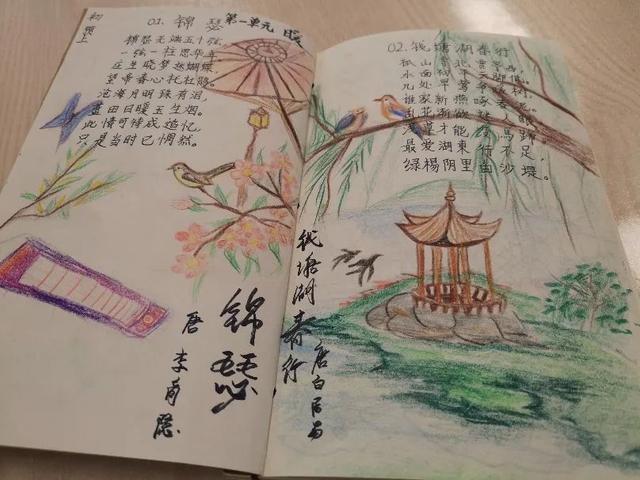 初
01. 锦瑟
第一单元 暖
锦瑟无端五十弦,
一弦一柱思华年。
庄生晓梦迷蝴蝶,
望帝春心托杜鹃。
沧海月明珠有泪,
蓝田日暖玉生烟。
此情可待成追忆,
只是当时已惘然。
锦瑟
唐 李商隐
02. 钱塘湖春行
孤山寺北贾亭西,
水面初平云脚低。
几处早莺争暖树,
谁家新燕啄春泥。
乱花渐欲迷人眼,
浅草才能没马蹄。
最爱湖东行不足,
绿楊阴里白沙堤。
钱塘湖春行
唐 白居易